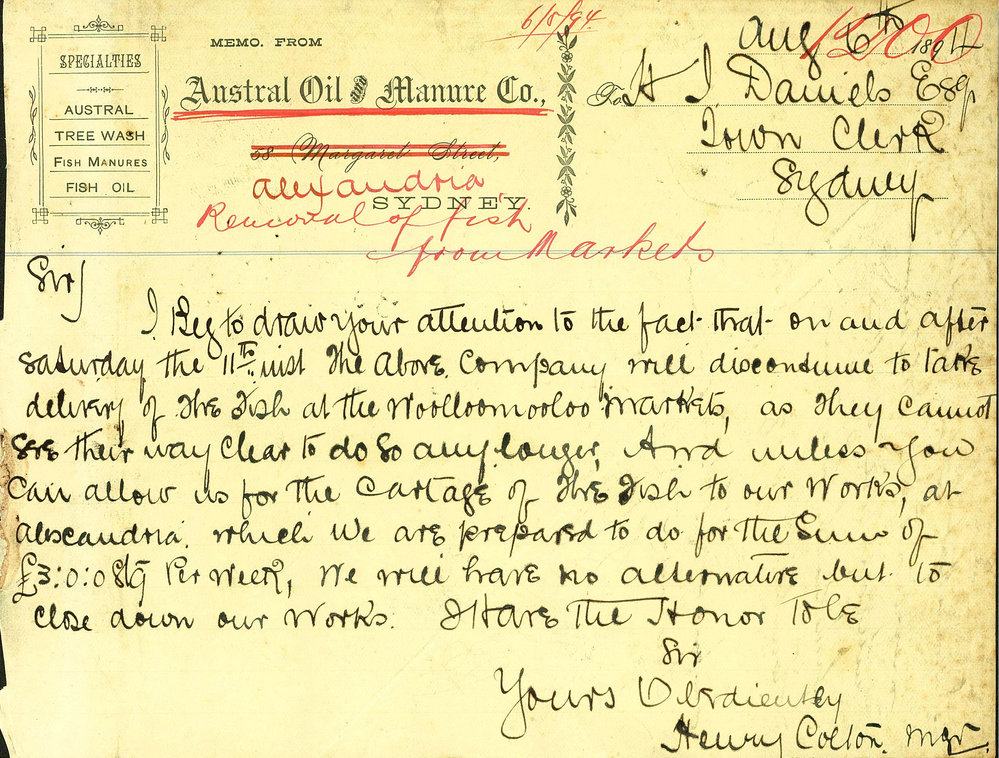 6/8/94
1200
SPECIALTIES
AUSTRAL
TREE WASH
FISH MANURES
FISH OIL
MEMO. FROM
Austral Oil and Manure Co.,
58 Margaret Street,
Alexandria
SYDNEY
Removal of fish
from Markets
Aug 6th 1894
To H J. Daniels Esq
Town Clerk
Sydney
Sir
I Beg to draw your attention to the fact that on and after
Saturday the 11th inst The Above Company will discontinue to take
delivery of The Fish at the Woolloomooloo Markets, as They Cannot
see their way Clear to do so any longer, And unless you
Can allow us for the Cartage of The Fish to our Works, at
Alexandria. which We are prepared to do for the Sum of
£3:0:0 Stg Per Week, We will have no alternative but to
Close down our Works. I Have The Honor To be
Sir
Yours Obediently
Henry Colton. Mgr.